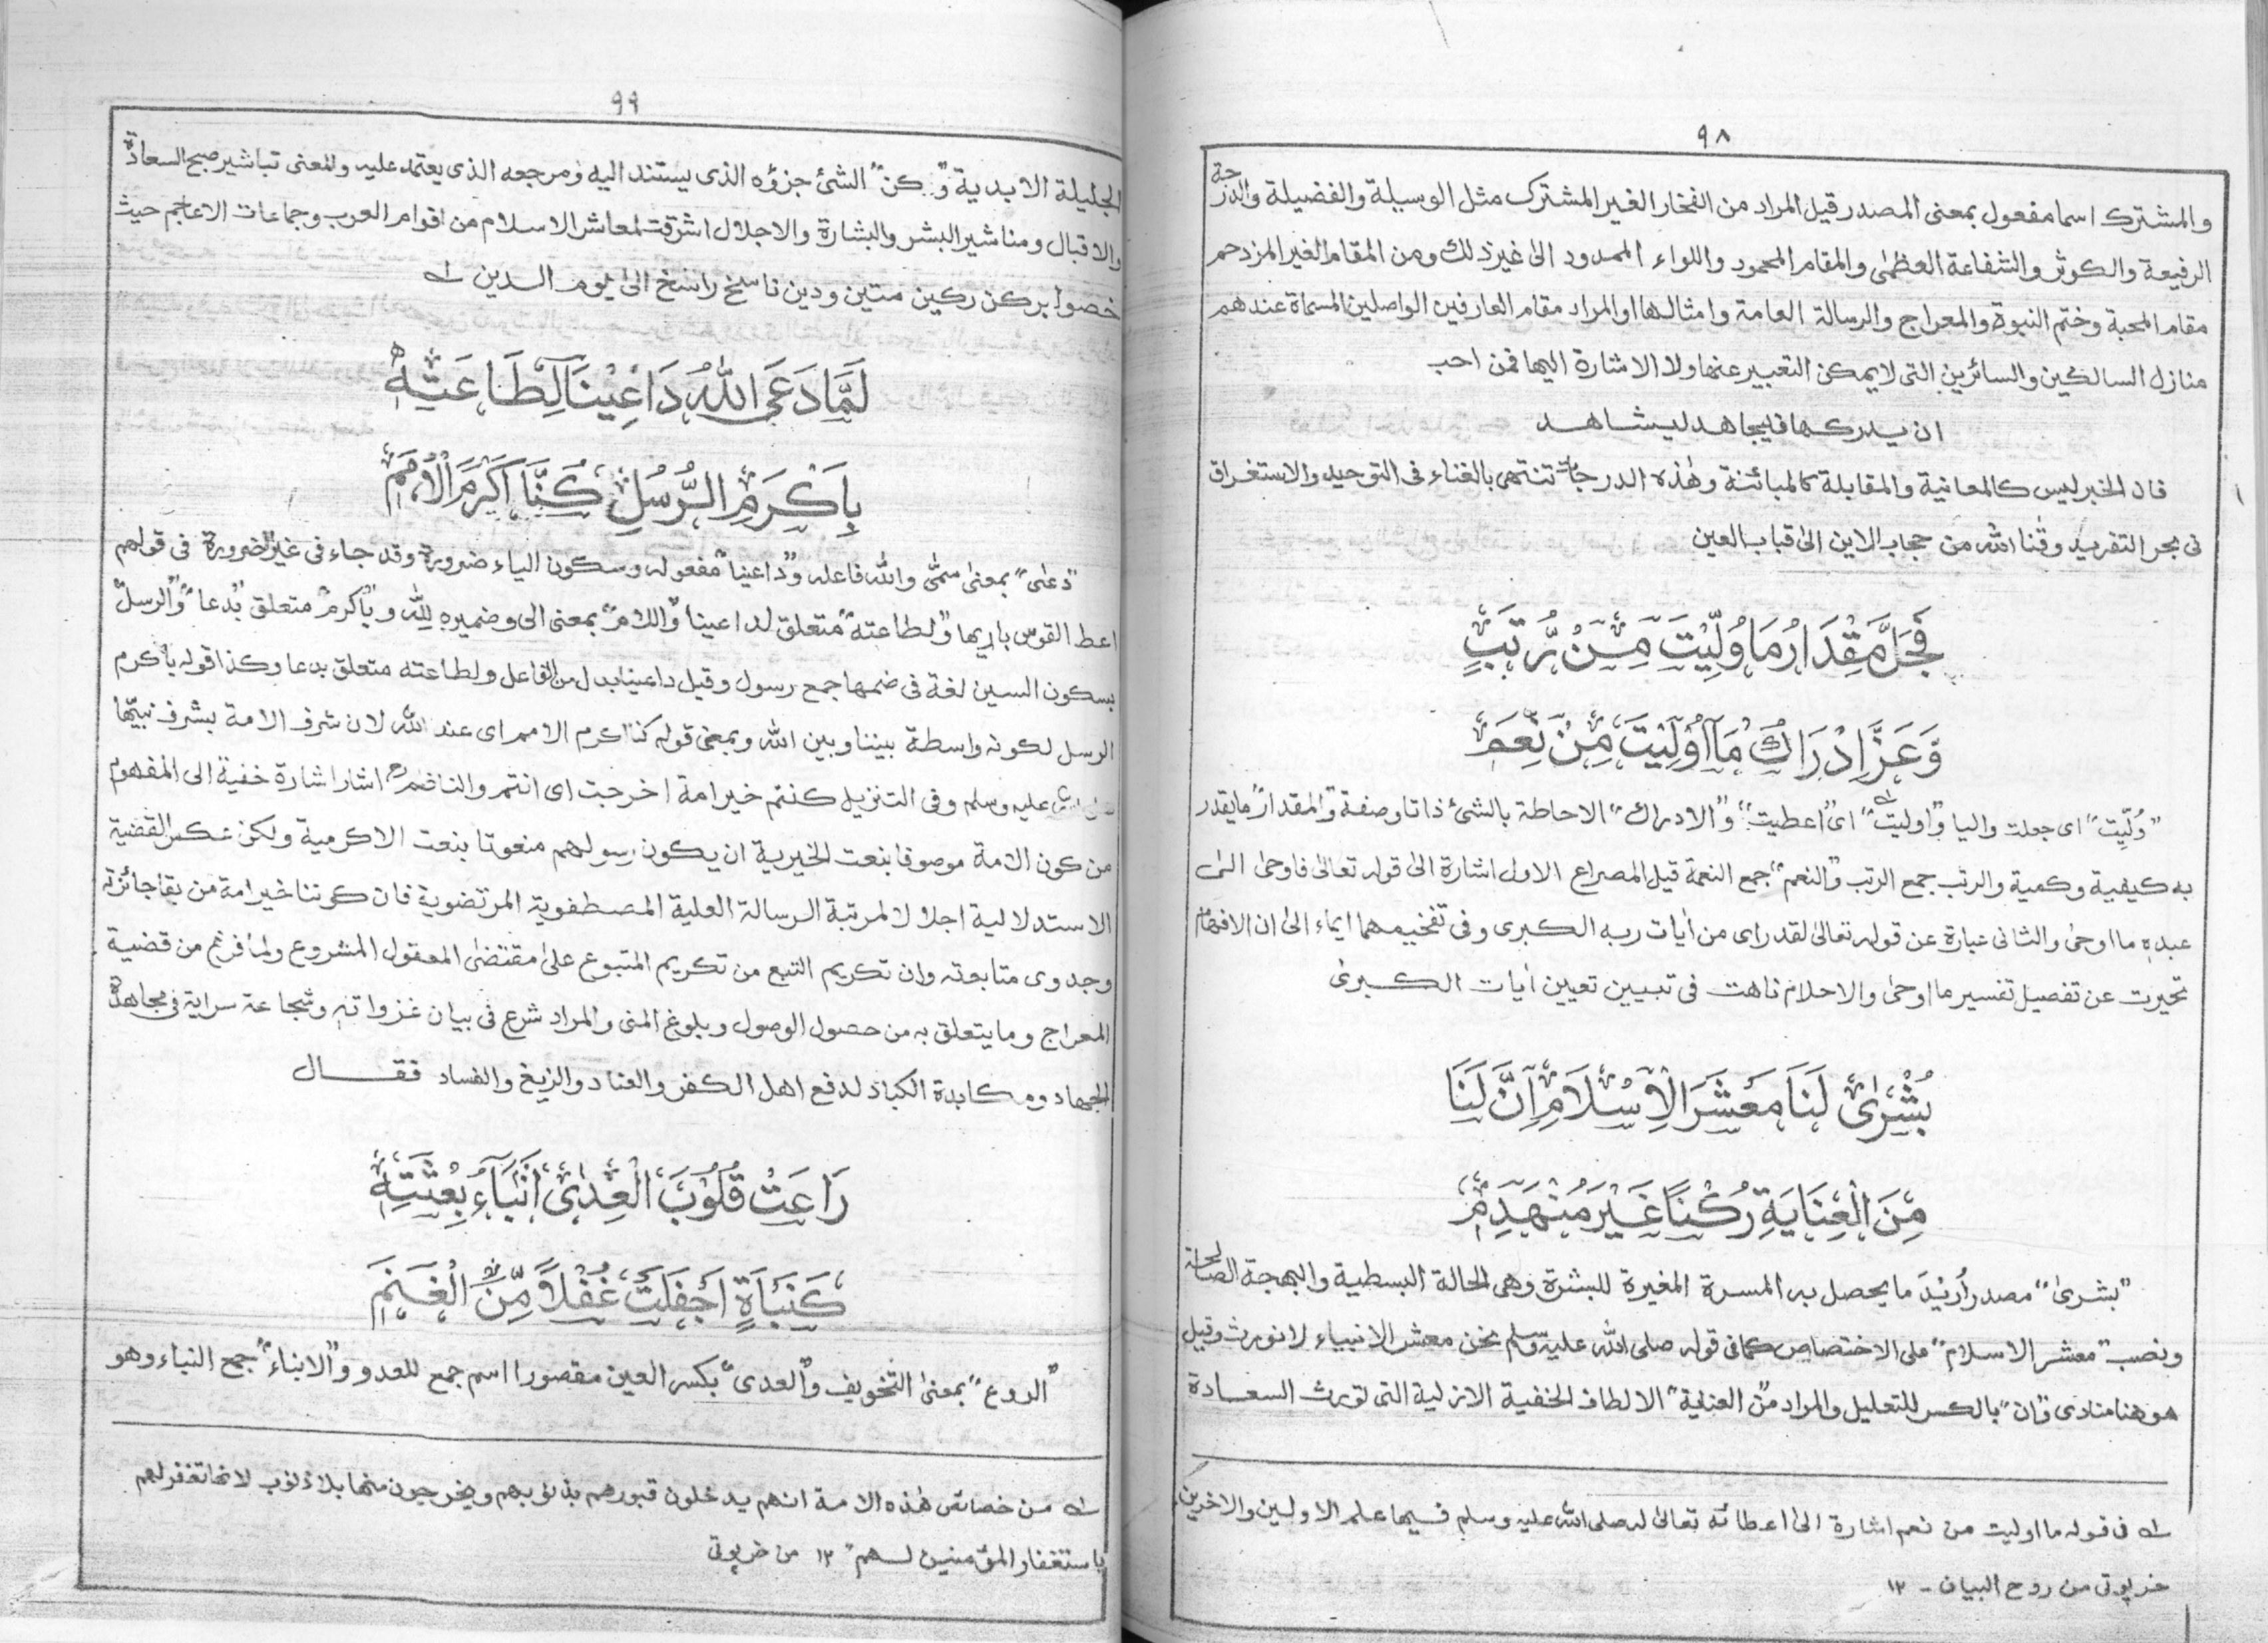 ٩٨
والمشترك اسما مفعول بمعنى المصدر قيل المراد من الفخار الغير المشترك مثل الوسيلة والفضيلة والدرجة
الرفيعة والكوثر والشفاعة العظمٰى والمقام المحمود واللواء الممدود الىٰ غير ذلك ومن المقام الغير المزدحم
مقام المحبة وختم النبوة والمعراج والرسالة العامة وامثالها او المراد مقام العارفين الواصلين المسماة عندهم
منازل السالكين والسائرين التى لا يمكن التعبير عنها ولا الاشارة اليها فمن احب
ان يدركها فليجاهد ليشاهد
فان الخبر ليس كالمعاينة والمقابلة كالمبائنة وهٰذه الدرجات تنتهى بالفناء فى التوحيد والاستغراق
فى بحر التفريد وقنا الله من حجاب الاين الىٰ قباب العين
فَجَلَّ مِقْدَارُ مَا وُلِّيْتَ مِنْ رُّتَبٍ
وَّعَزَّ اِدْرَاكُ مَآ اُوْلِيْتَ مِنْ نِّعَمٖ
”وُلِّيت“ اى جعلت واليا و”اوليت“ اى ”اعطيت“ و”الادراك“ الاحاطة بالشئ ذاتا وصفة و”المقدار“ ما يقدر
به كيفية وكمية والرتب جمع الرتب و”النعم“ جمع النعمة قيل المصراع الاول اشارة الىٰ قوله تعالىٰ فاوحىٰ الىٰ
عبدهٖ ما اوحىٰ والثانى عبارة عن قوله تعالىٰ لقد راى من اٰيات ربه الكبرى وفى تفخيمهما ايماء الىٰ ان الافهام
تحيرت عن تفصيل تفسير ما اوحىٰ والاحلام تاهت فى تبيين تعيين اٰيات الكبرىٰ
بُشْرٰىْ لَنَا مَعْشَرَ الْاِسْلَامِ اِنَّ لَنَا
مِنَ الْعِنَايَةِ رُكْنًا غَيْرَ مُنْهَدِمٖ
”بشرىٰ“ مصدر اُريْدَ ما يحصل به المسرة المغيرة للبشرة وهى الحالة البسطية والبهجة الصالحة
ونصب ”معشر الاسلام“ على الاختصاص كما فى قوله صلى الله عليه وسلم نحن معشر الانبياء لا نورث وقيل
هو هنا منادى و”ان“ بالكسر للتعليل والمراد من ”العناية“ الالطاف الخفية الازلية التى تورث السعادة
له فى قوله ما اوليت من نعم اشارة الىٰ اعطائه تعالىٰ له صلى الله عليه وسلم فيها علم الاولين والاخرين
خرپوتى من روح البيان - ١٢
٩٩
الجليلة الابدية و كن الشئ جزؤه الذى يستند اليه ومرجعه الذى يعتمد عليه والمعنى تباشير صبح السعادة
والاقبال ومناشير البشر والبشارة والاجلال اشرقت لمعاشر الاسلام من اقوام العرب وجماعات الاعاجم حيث
خصوا بركن ركين متين ودين ناسخ راسخ الىٰ يوم الدين له
لَمَّا دَعَى اللّٰهُ دَاعِيْنَا لِطَاعَتِهٖ
بِاَكْرَمِ الرُّسُلِ كُنَّا اَكْرَمَ الْاُمَمٖ
”دعٰى“ بمعنىٰ سمّى والله فاعله و”داعينا“ مفعوله وسكون الياء ضرورة وقد جاء فى غير الضرورة فى قولهم
اعط القوس باريها و”لطاعته“ متعلق لداعينا و”اللام“ بمعنى الى وضميره لِلّٰه و”باكرم“ متعلق ”بدعا“ و”الرسل“
بسكون السين لغة فى ضمها جمع رسول وقيل داعينا بدل من الفاعل ولطاعته متعلق بدعا وكذا قوله باكرم
الرسل لكونه واسطة بيننا وبين الله وبمعنى قوله كنا اكرم الامم اى عند الله لان شرف الامة بشرف نبيها
صلى الله عليه وسلم وفى التنزيل كنتم خير امة اخرجت اى انتم والناظم اشار اشارة خفية الى المفهوم
من كون الامة موصوفا بنعت الخيرية ان يكون رسولهم منعوتا بنعت الاكرمية ولكن عكس القضية
الاستدلالية اجلالا لمرتبة الرسالة العلية المصطفوية المرتضوية فان كوننا خير امة من بقا جائزته
وجدوى متابعته وان تكريم التبع من تكريم المتبوع علىٰ مقتضٰى المعقول المشروع ولما فرغ من قضية
المعراج وما يتعلق به من حصول الوصول وبلوغ المنى والمراد شرع فى بيان غزواته وشجاعة سراية فى مجاهدة
الجهاد ومكابدة الكباد لدفع اهل الكفر والعناد والزيغ والفساد فقــال
رَاعَتْ قُلُوْبَ الْعِدٰىْ اَنْبَآءُ بِعْثَتِهٖ
كَنَبْاَةٍ اَجْفَلَتْ غُفْلًا مِّنَ الْغَنَمٖ
”الروع“ بمعنىٰ التخويف و”العدى“ بكسر العين مقصورا اسم جمع للعدو و”الانباء“ جمع النباء وهو
له من خصائص هٰذه الامة انهم يدخلون قبورهم بذنوبهم ويخرجون منها بلا ذنوب لانها تغفر لهم
باستغفار المؤمنين لهم ١٢ من خرپوتى